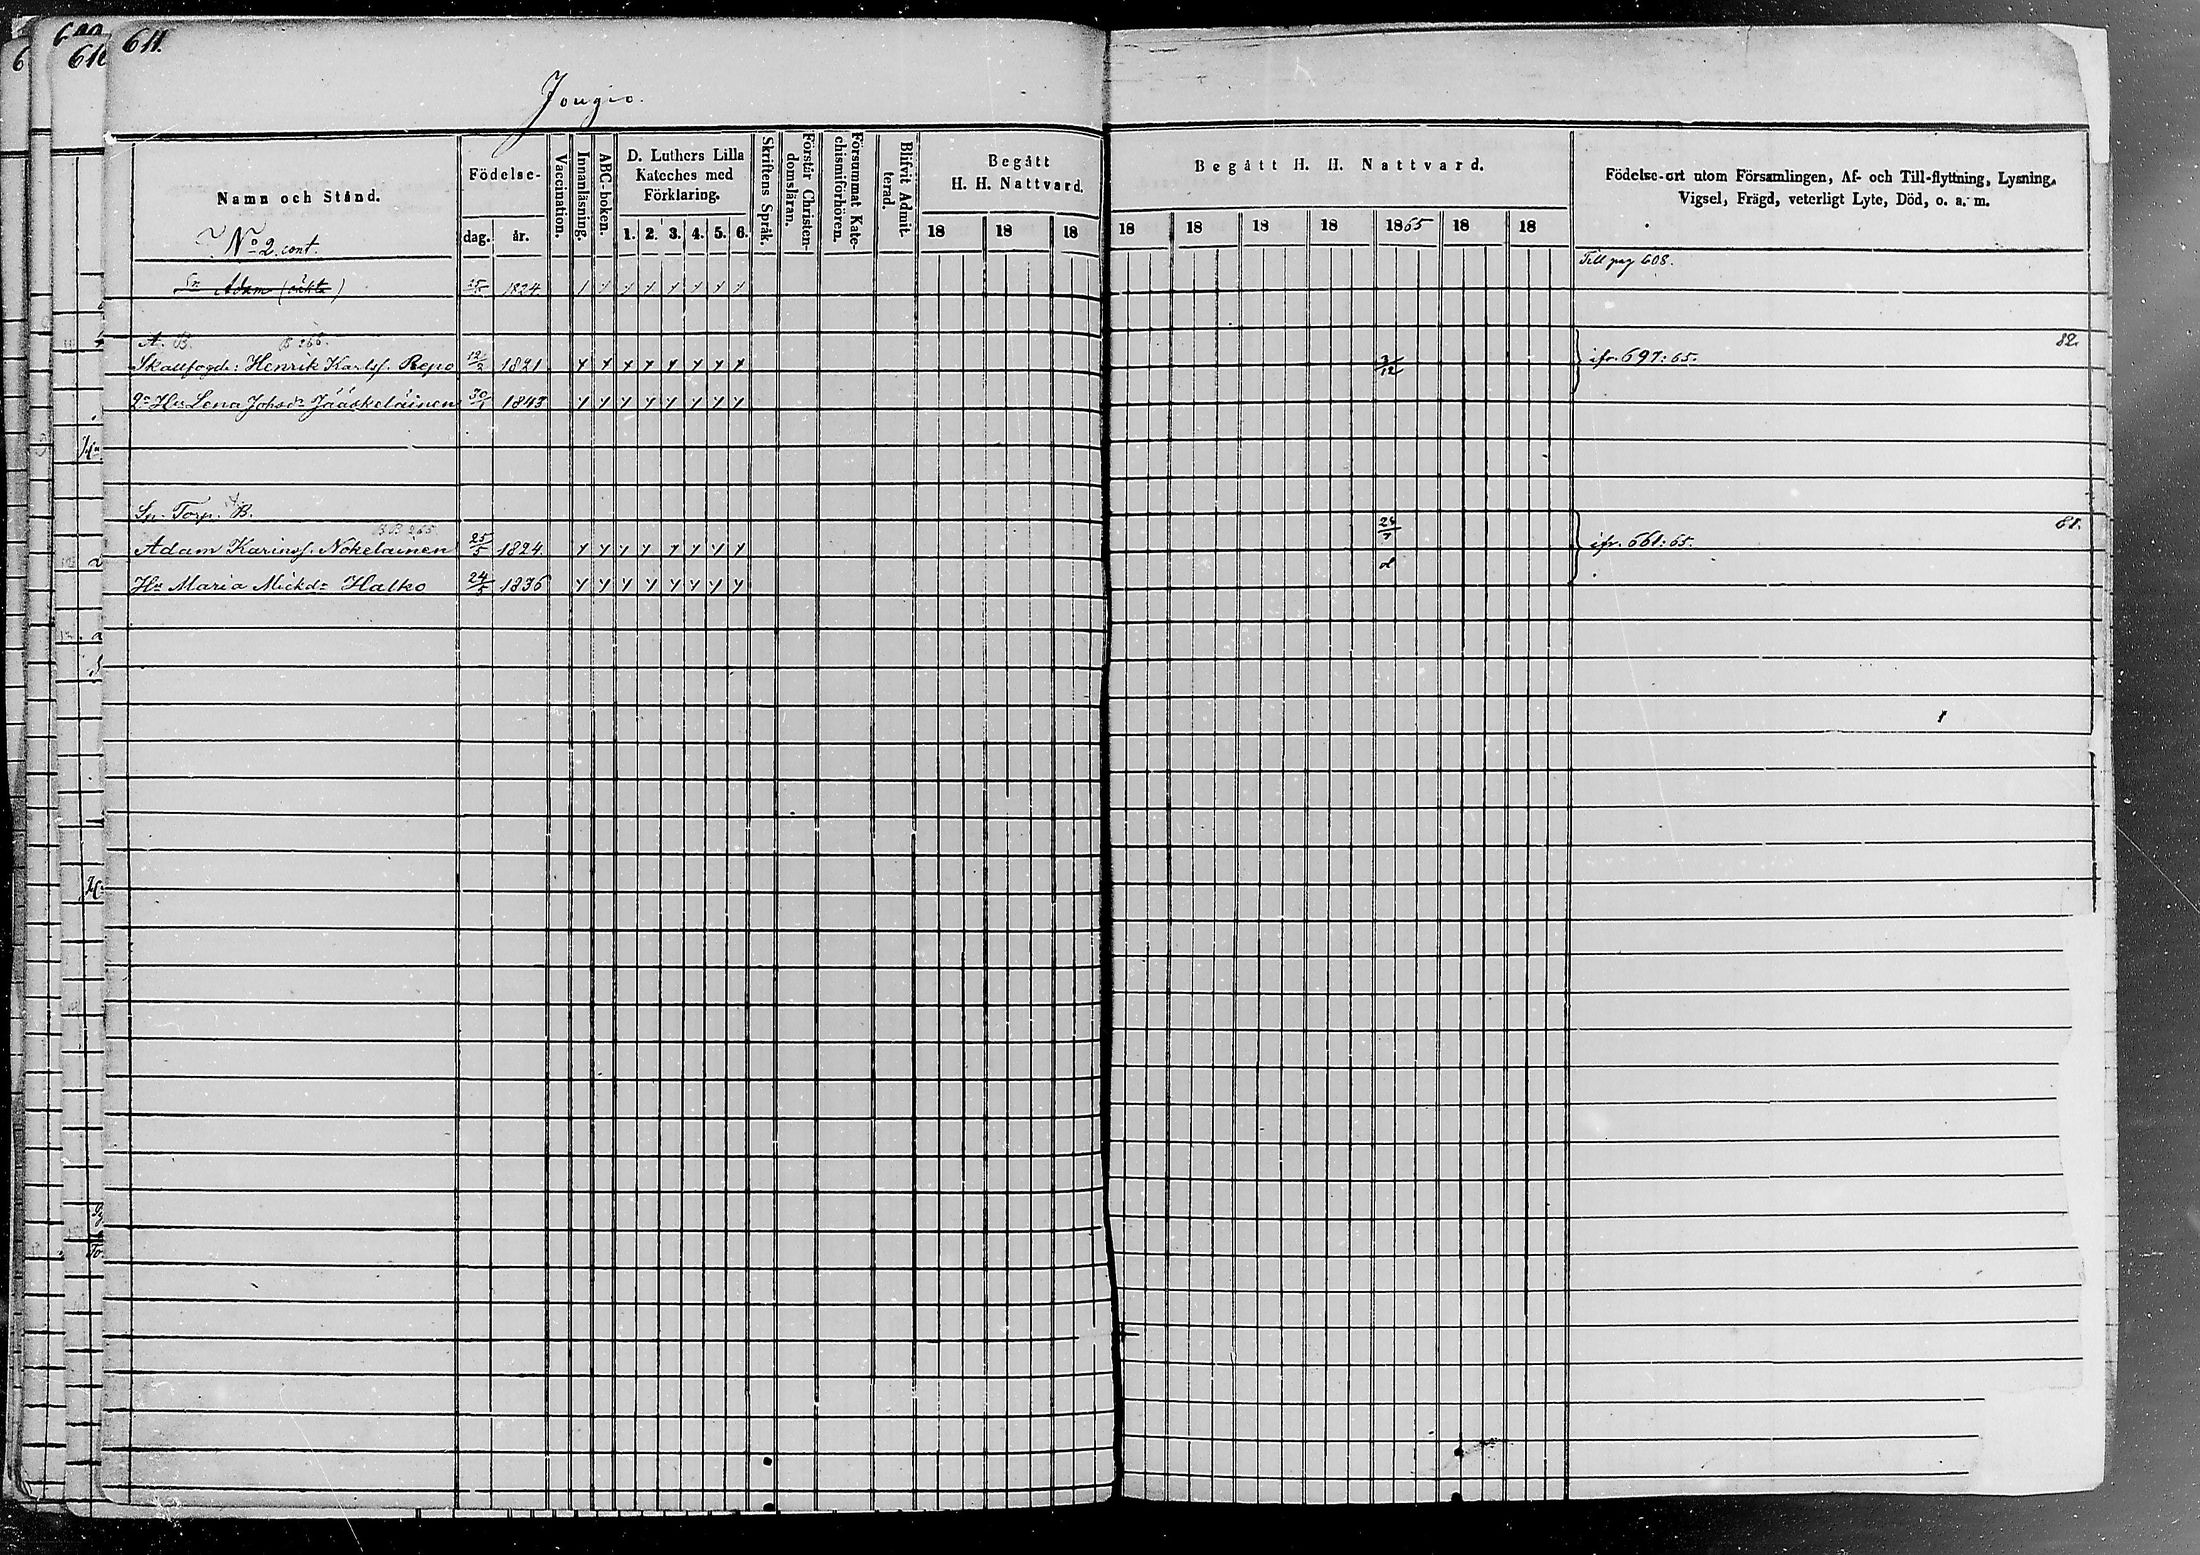 611.
610
Jougio.
Namn och Stånd.
Födelse-
dag. år.
Vaccination.
Innanläsning.
ABC-boken.
D. Luthers Lilla
Kateches med
Förklaring.
1. 2. 3. 4. 5. 6.
Skriftens Språk.
Förstår Christen-
domsläran.
Försummat Kate-
chismiförhören.
Blifvit Admit-
terad.
Begått
H. H. Nattvard.
18 18 18
Begått H. H. Nattvard.
18 18 18 18 1865 18 18
Födelse-ort utom Församlingen, Af- och Till-flyttning, Lysning,
Vigsel, Frägd, veterligt Lyte, Död, o. a. m.
No 2 cont.
Sn Adam (oäkta) 1824 Till pag 608.
A. B. B 266. 82.
Skallfogde: Henrik Karlsf. Repo 12/2 1821 3/12 ifr. 697:65.
2a Hu Lena Johsdr Jääskeläinen 1843
Sp. Torp. B. 81.
B B 265
Adam Karinsf. Nokelainen 25/5 1824 ifr. 661:65.
Hu Maria Mickdr Halko 1836 d